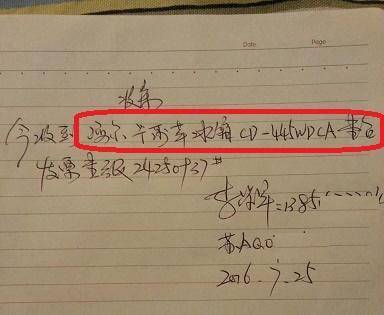 Date. Page
收条
今收到海尔卡萨帝冰箱CD-445WDCA壹台
发票壹张24250937#
李 军=1385
苏AQ0
2016.7.25